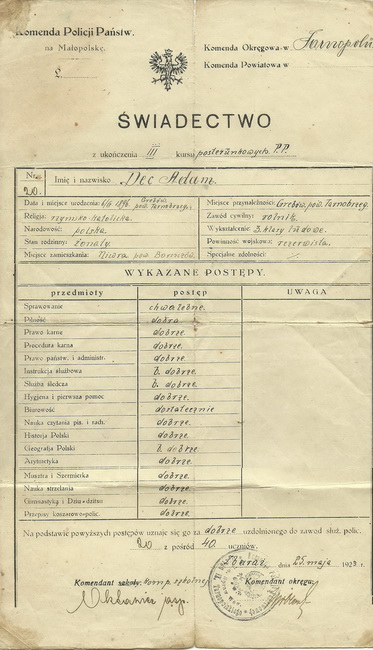 Komenda Policji Państw.
na Małopolskę.
Komenda Okręgowa w Tarnopolu
Komenda Powiatowa w
L.
ŚWIADECTWO
z ukończenia III kursu posterunkowych P.P.
Nr. 20. Imię i nazwisko Dec Adam.
Data i miejsce urodzenia: Grębów, pow. Tarnobrzeg.
Miejsce przynależności: Grębów, pow. Tarnobrzeg.
Religja: rzymsko-katolicka
Zawód cywilny: rolnik.
Narodowość: polska.
Wykształcenie: 3. klasy ludowe.
Stan rodzinny: żonaty.
Powinność wojskowa: rezerwista.
Miejsce zamieszkania: pow.
Specjalne zdolności:
WYKAZANE POSTĘPY.
przedmioty postęp UWAGA
Sprawowanie chwalebne.
Pilność dobra
Prawo karne dobrze.
Procedura karna dobrze.
Prawo państw. i administr. dobrze.
Instrukcja służbowa b. dobrze.
Służba śledcza b. dobrze.
Hygjena i pierwsza pomoc dobrze.
Biurowość dostatecznie
Nauka czytania pis. i rach. dobrze.
Historja Polski dobrze.
Geografja Polski b. dobrze
Arytmetyka dobrze.
Musztra i Szermierka dobrze.
Nauka strzelania dobrze.
Gimnastyka i Dżiu-dżitsu dobrze.
Przepisy koszarowo-polic. dobrze.
Na podstawie powyższych postępów uznaje się go za dobrze uzdolnionego do zawod. służ. polic.
20 z pośród 40. uczniów.
Zbaraż, dnia 25. maja 1923.
Komendant szkoły: komp. szkolnej
Komendant okręgu: